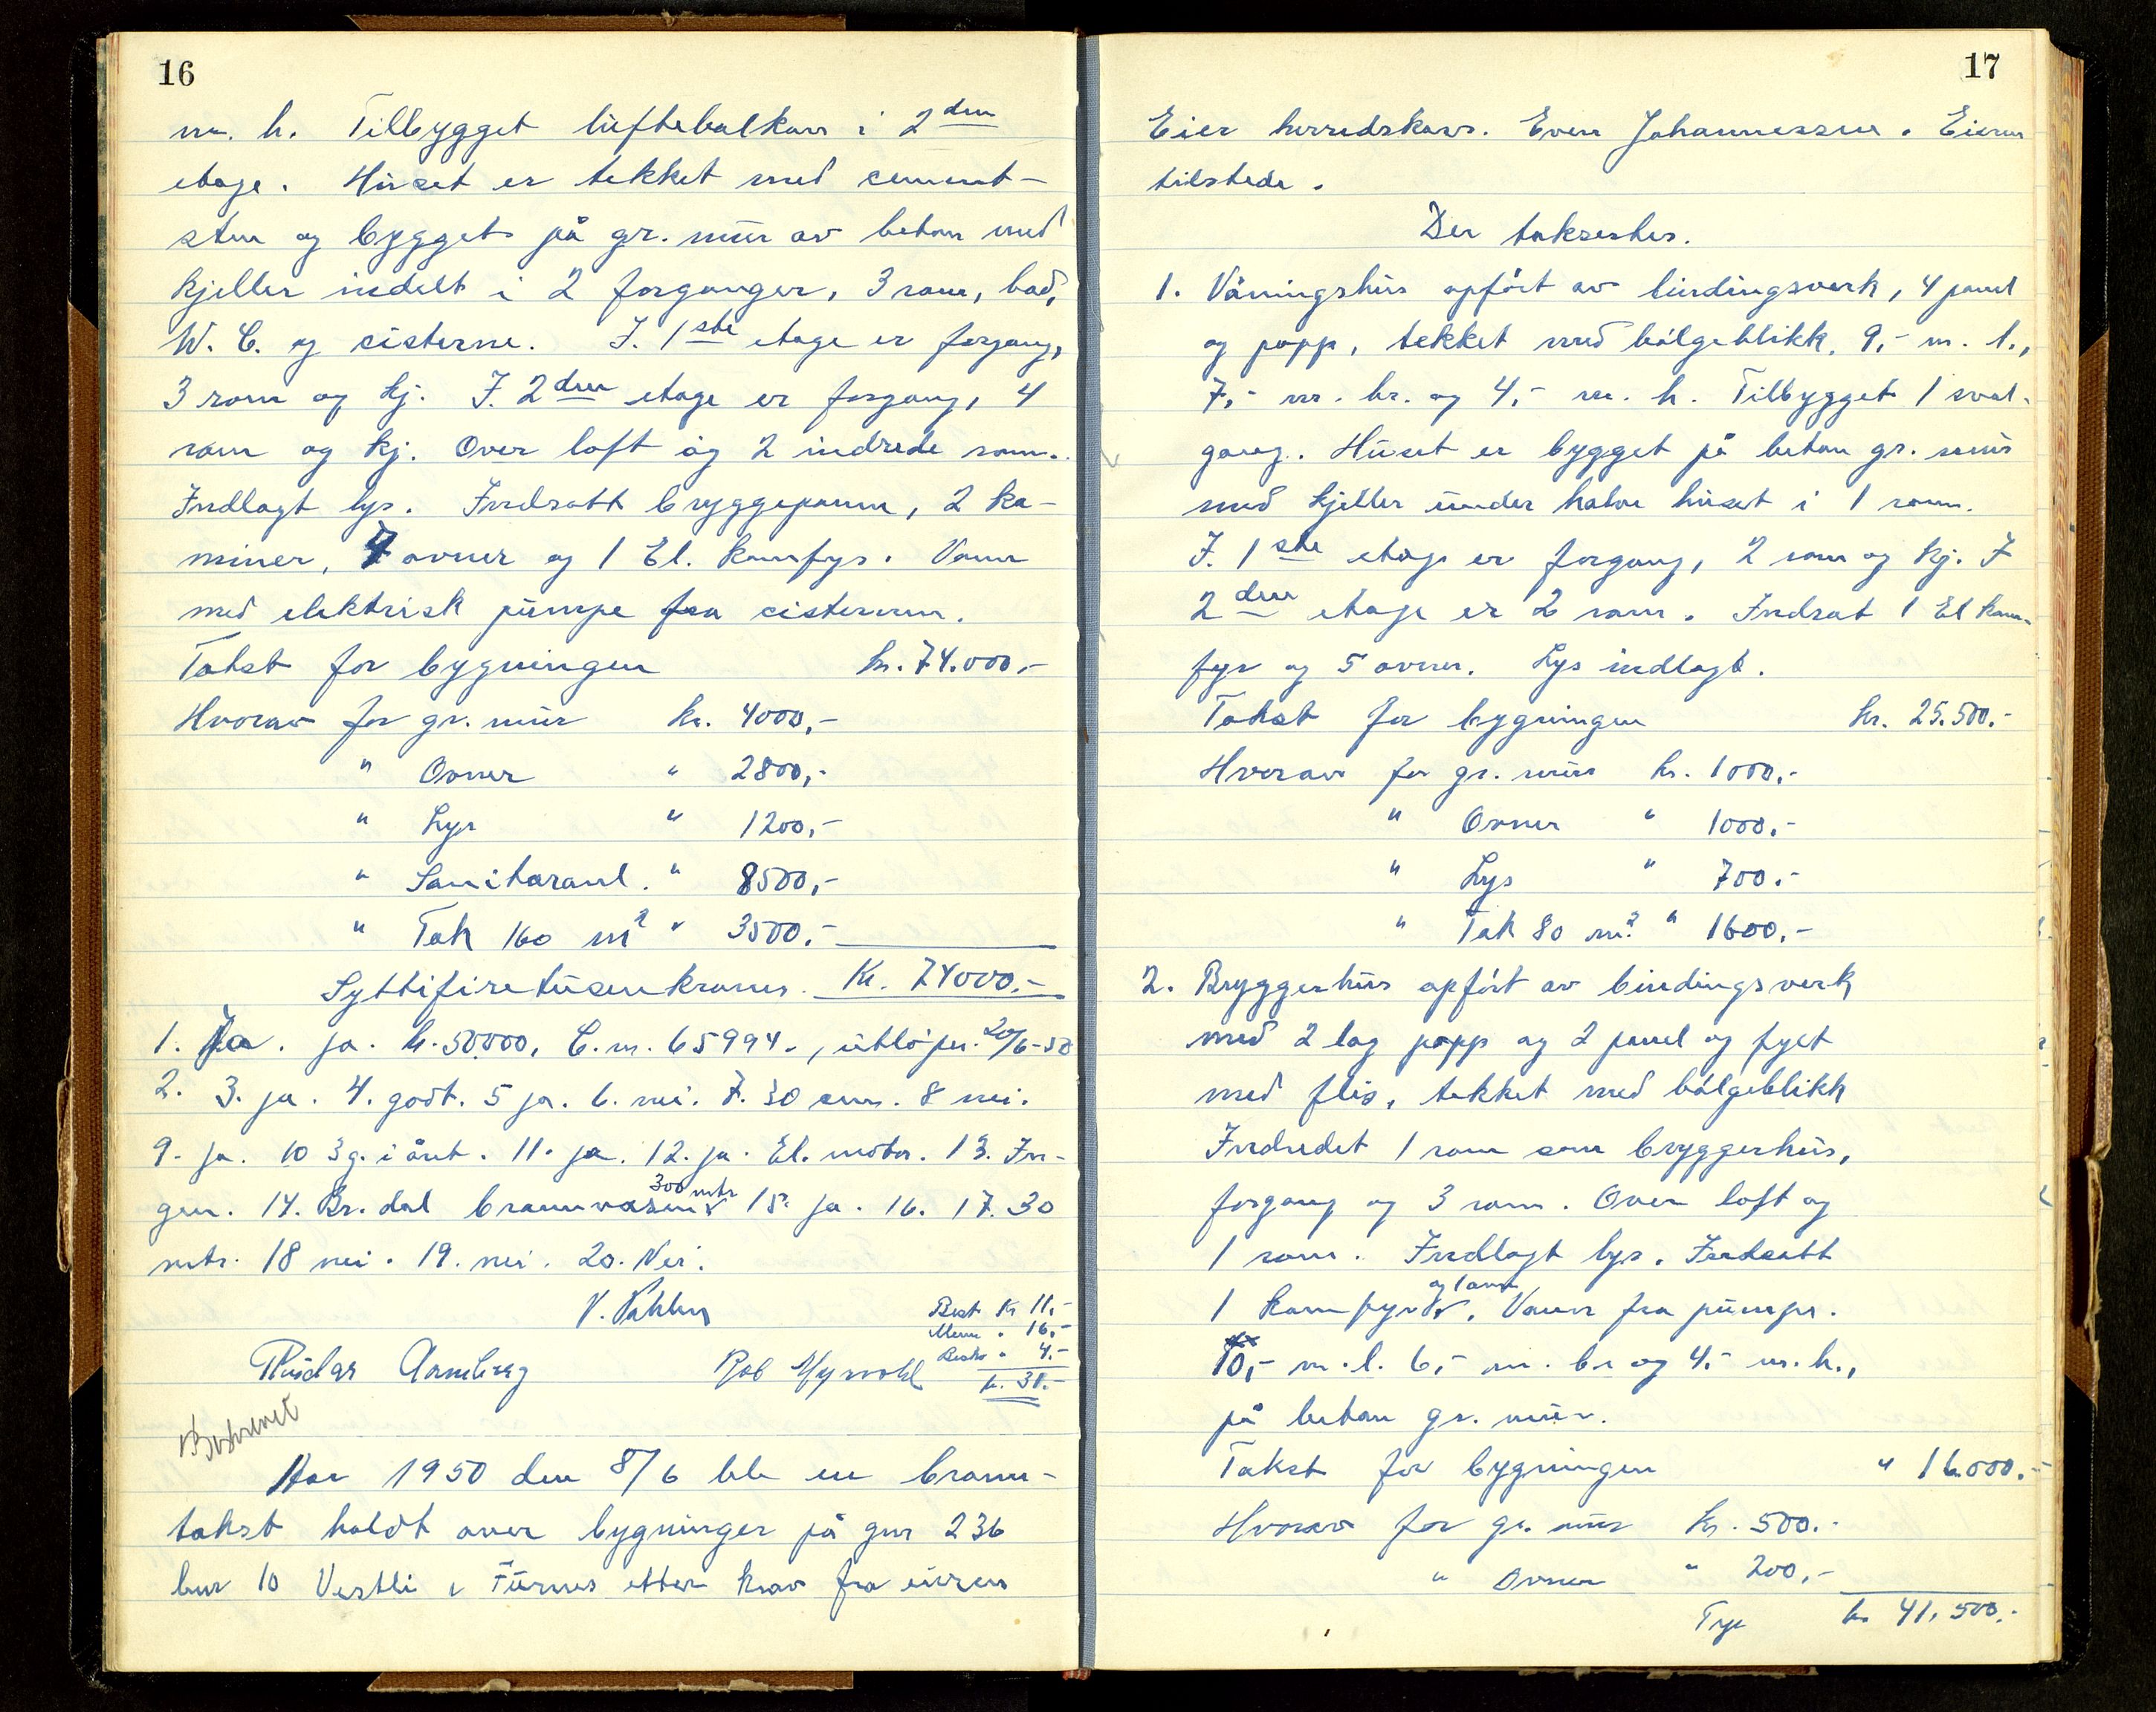 16
m. h. Tilbygget luftebalkon i 2den
etage. Huset er tekket med cement-
sten og bygget på gr. mur av beton med
kjeller indelt i 2 forganger, 3 rom, bad,
W. C. og cisterne. I. 1ste etage er forgang,
3 rom og kj. I. 2den etage er forgang, 4
rom og kj. Over loft og 2 indrede rom.
Indlagt lys. Indsatt bryggepanne, 2 ka-
miner, 7 ovner og 1 El. komfyr. Vann
med elektrisk pumpe fra cisternen.
Takst for bygningen kr. 74.000,-
Hvorav for gr. mur kr. 4000,-
" Ovner " 2800,-
" Lys " 1200,-
" Sanitæranl. " 8500,-
" Tak 160 m2 " 3500.-
Syttifiretusenkroner. Kr. 74000.-
1. Ja. ja. k. 50.000, C. nr. 65994., utløper. 20/6-50
2. 3. ja. 4. godt. 5 ja. 6. nei. 7. 30 cm. 8 nei.
9. ja. 10 3 g. i året. 11. ja. 12. ja. El. motor. 13. In-
gen. 14. Br.dal brannvesen 300 mtr 15. ja. 16. 17. 30
mtr. 18 nei. 19. nei. 20. Nei.
Best Kr 11,-
Menn " 16,-
" 4.-
Rob Myrvold kr. 31.-
Aar 1950 den 8/6 ble en brann-
takst holdt over bygninger på gnr 236
bnr 10 Vestli i Furnes etter krav fra eieren
17
Eier herredskas. Even Johannessen. Eieren
tilstede.
Der taksertes.
1. Våningshus opført av bindingsverk, 4 panel
og papp, tekket med bølgeblikk. 9,- m. l.,
7,- m. br. og 4,- m. h. Tilbygget 1 sval-
gang. Huset er bygget på beton gr. mur
med kjeller under halve huset i 1 rom.
I. 1ste etage er forgang, 2 rom og kj. I
2den etage er 2 rom. Indsat 1 El kom-
fyr og 5 ovner. Lys indlagt.
Takst for bygningen kr. 25.500.-
Hvorav for gr. mur kr. 1000.-
" Ovner " 1000.-
" Lys " 700.-
" Tak 80 m2. " 1600.-
2. Bryggerhus opført av bindingsverk
med 2 lag papp og 2 panel og fylt
med flis, tekket med bølgeblikk
Indredet 1 rom som bryggerhus,
forgang og 3 rom. Over loft og
1 rom. Indlagt lys. Indsatt
1 komfyr og 1 ovn. Vann fra pumpe.
10,- m. l. 6,- m. br og 4.- m. h.,
på beton gr. mur.
Takst for bygningen " 16.000.-
Hvorav for gr. mur kr. 500.-
" Ovner " 200,-
kr 41.500.-